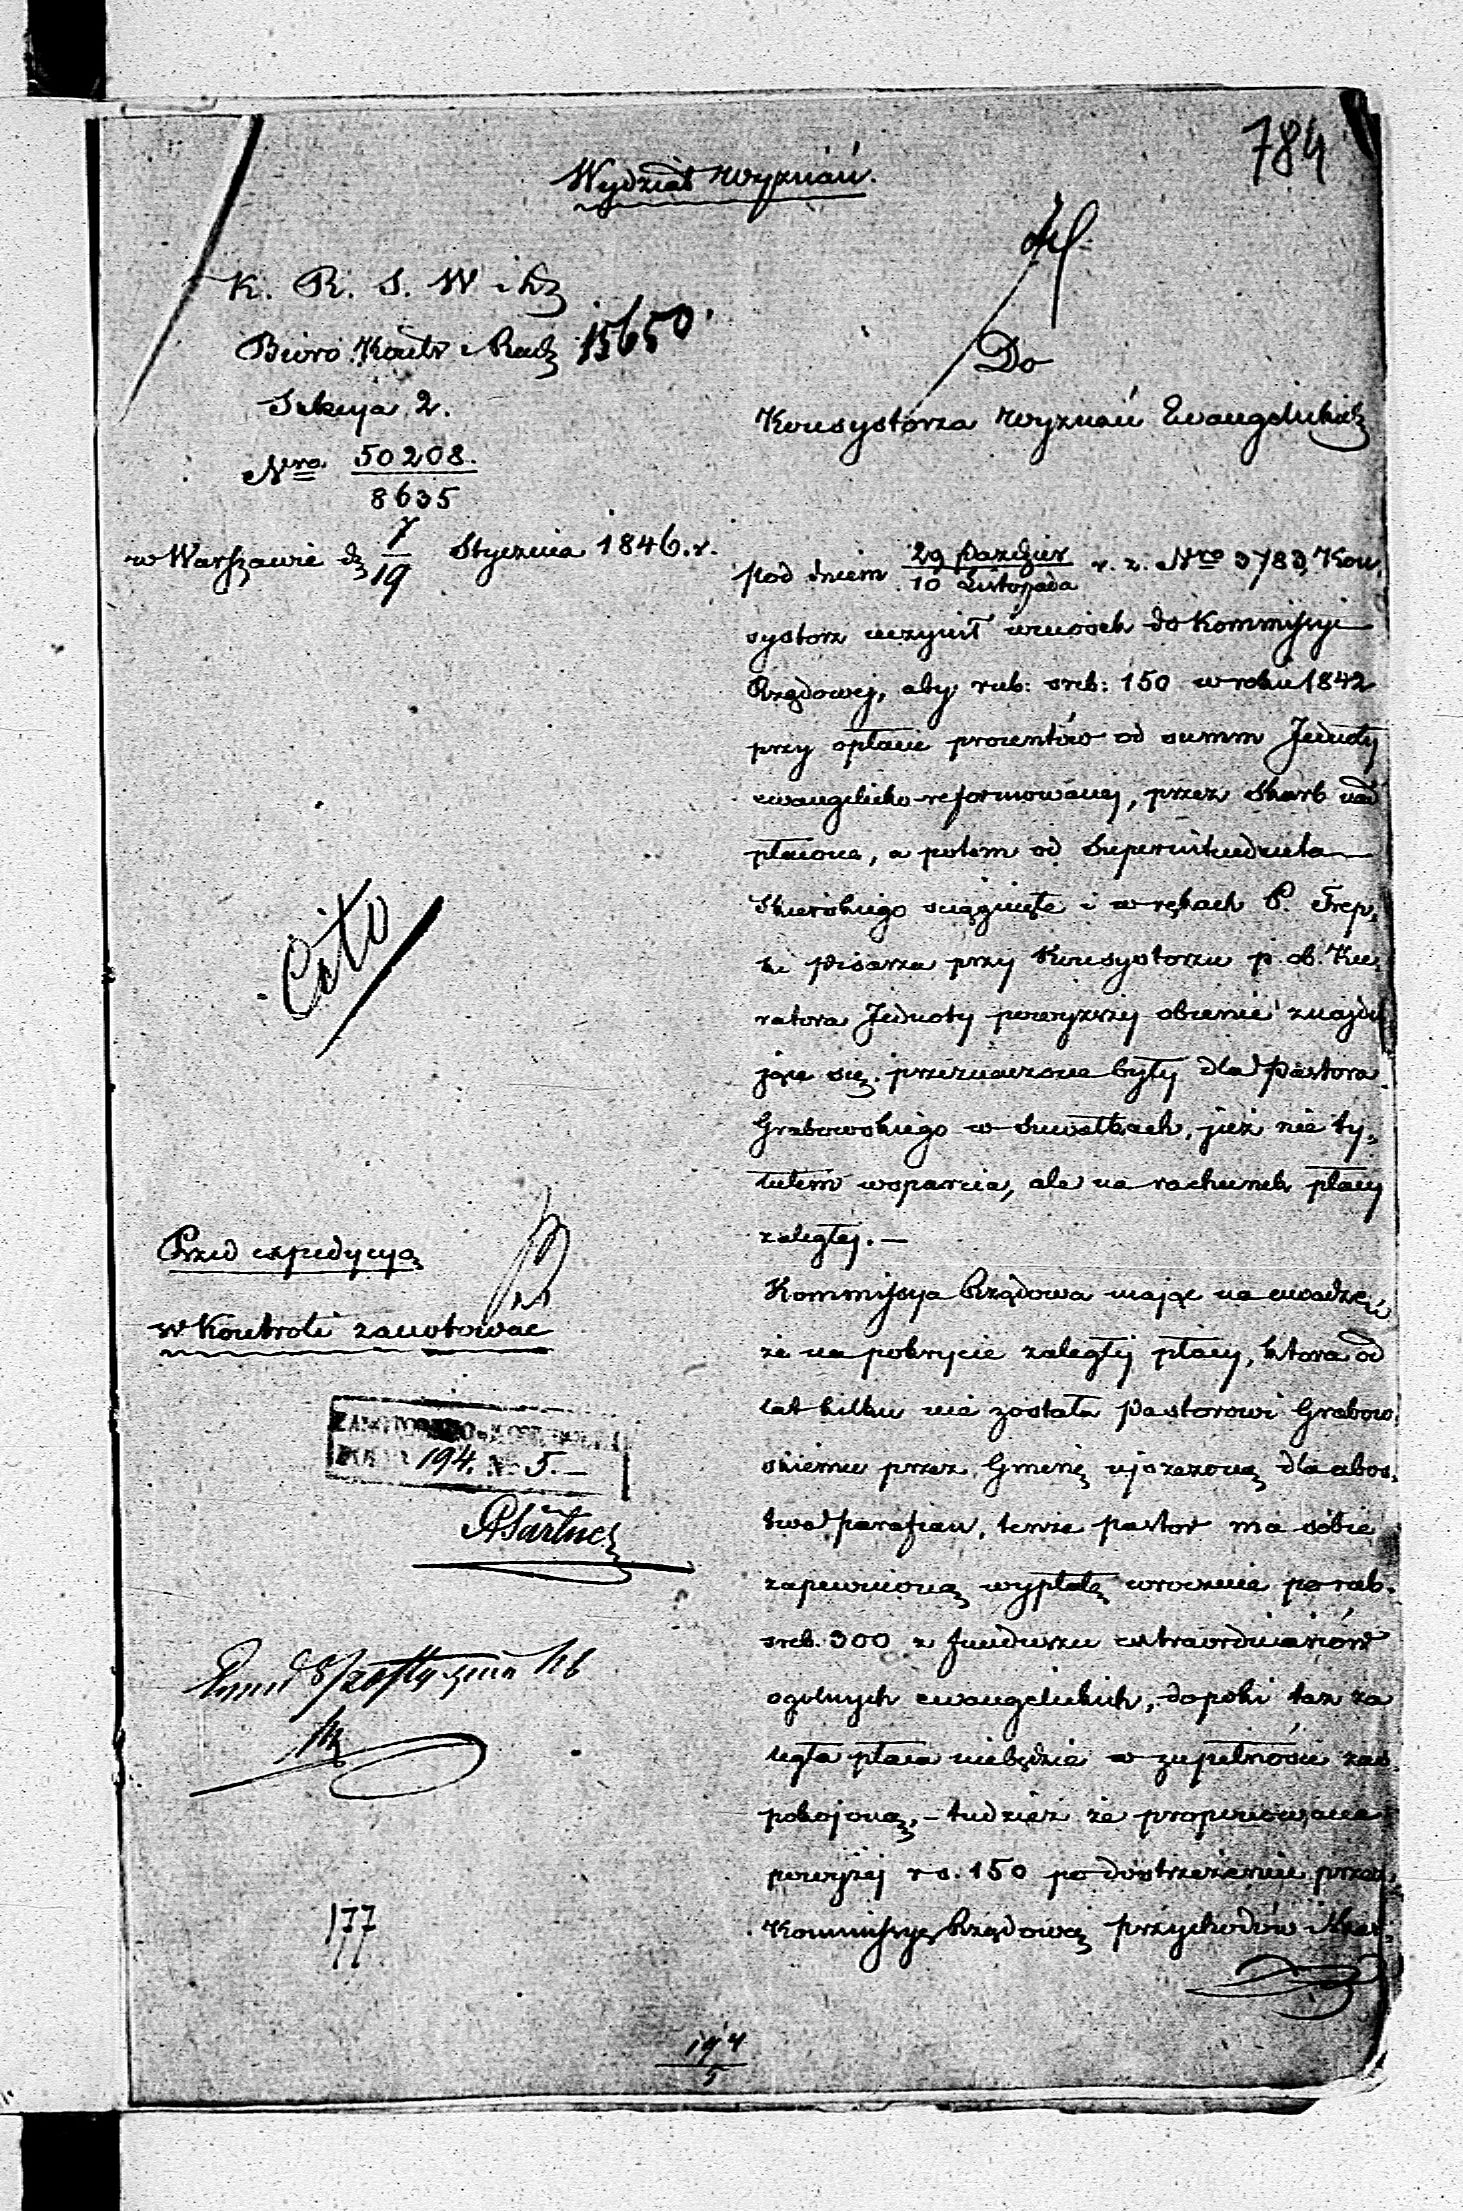 784
Wydział Wyznań.
K. R. S. W i D
Biuro Kontr i Rach 15650.
Sekcya 2.
Nro 50208.
8635
w Warszawie d 7/19 Stycznia 1846. r.
Do
Konsystorza Wyznań Ewangelickich
Pod dniem 29 Paździer / 10 Listopada r. z. Nro 3783, Kon
systorz uczynił wniosek do Kommissyi
Rządowej, aby rub: sreb: 150 w roku 1842
przy opłacie procentów od summ Jednoty
ewangelicko-reformowanej, przez Skarb nad
płacone, a potem od Superintendenta
Skierskiego ściągnięte i w rękach P. Trep,
ki Pisarza przy Konsystorzu p. ob. Ku,
ratora Jednoty powyższej obecnie znajdu
jące się. przeznaczone były dla Pastora
Grabowskiego w Suwałkach, już nie ty,
tułem wsparcia, ale na rachunek płacy
zaległej. —
Kommissya Rządowa mając na uwadze,
że na pokrycie zaległej płacy, która od
lat kilku nie została Pastorowi Grabow,
skiemu przez Gminę uiszczoną dla ubós,
twa parafian, tenże pastor ma sobie
zapewnioną wypłatę corocznie po rub.
sreb. 300 z funduszu extraordinariów
ogólnych ewangelickich, dopóki taż za
legła płaca niebędzie w zupełności zas,
pokojoną, – tudzież że proponowane
powyżej rs. 150 po dostrzeżeniu przez
Kommissyę Rządową Przychodów i Skar,
Cito
Przed expedycyą
w Kontroli zanotować
194. No 5. —
177
194
5